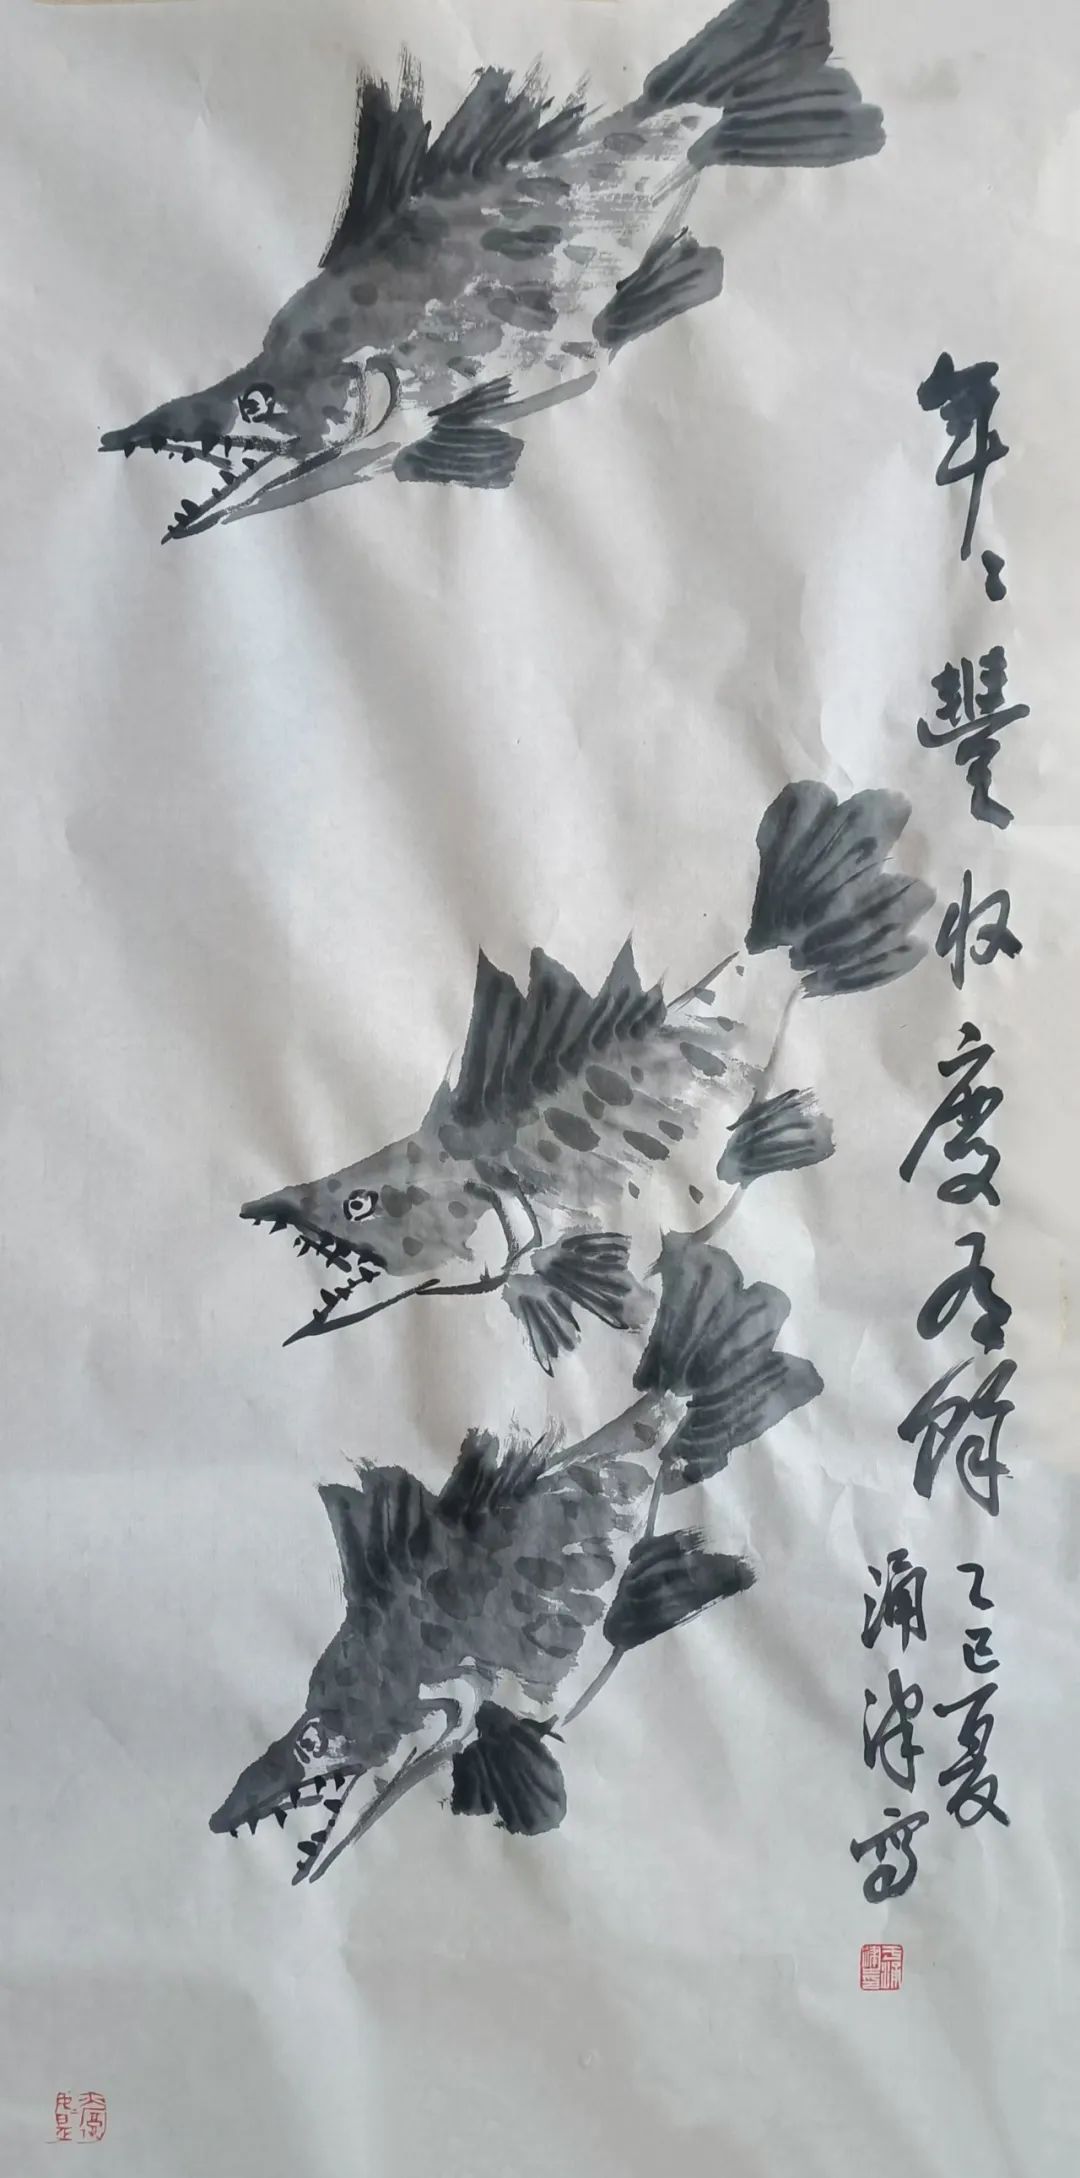 年〻豐收慶有餘
乙巳夏
涌津寫